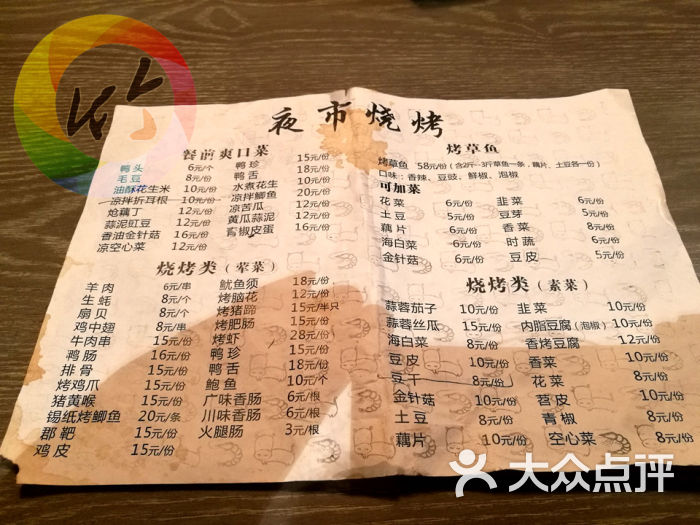 夜市烧烤
餐前爽口菜
鸭头 6元/个
毛豆 8元/份
油酥花生米 10元/份
凉拌折耳根 10元/份
炝藕丁 12元/份
蒜泥豇豆 12元/份
香油金针菇 16元/份
凉空心菜 12元/份
鸭珍 15元/份
鸭舌 18元/份
水煮花生 10元/份
凉拌鲫鱼 20元/份
凉苦瓜 12元/份
黄瓜蒜泥 12元/份
青椒皮蛋 16元/份
烤草鱼
烤草鱼 58元/份(含2斤-3斤草鱼一条,藕片、土豆各一份)
口味:香辣、豆豉、鲜椒、泡椒
可加菜
花菜 6元/份
土豆 5元/份
藕片 6元/份
海白菜 6元/份
金针菇 6元/份
韭菜 6元/份
豆芽 5元/份
香菜 8元/份
时蔬 6元/份
豆皮 5元/份
烧烤类(荤菜)
羊肉 6元/串
生蚝 8元/个
扇贝 8元/个
鸡中翅 8元/串
牛肉串 15元/份
鸭肠 16元/份
排骨 15元/份
烤鸡爪 15元/份
猪黄喉 15元/份
锡纸烤鲫鱼 20元/条
郡靶 15元/份
鸡皮 15元/份
鱿鱼须 18元/份
烤脑花 12元/份
烤猪蹄 15元/半只
烤肥肠 15元/份
烤虾 28元/份
鸭珍 15元/份
鸭舌 18元/份
鲍鱼 10元/个
广味香肠 6元/根
川味香肠 6元/根
火腿肠 3元/根
烧烤类(素菜)
蒜蓉茄子 10元/份
蒜蓉丝瓜 15元/份
海白菜 8元/份
豆皮 10元/份
豆干 8元/份
金针菇 10元/份
土豆 8元/份
藕片 10元/份
韭菜 10元/份
内脂豆腐(泡椒) 10元/份
香烤豆腐 12元/份
香菜 10元/份
花菜 8元/份
苕皮 10元/份
青椒 8元/份
空心菜 8元/份
大众点评